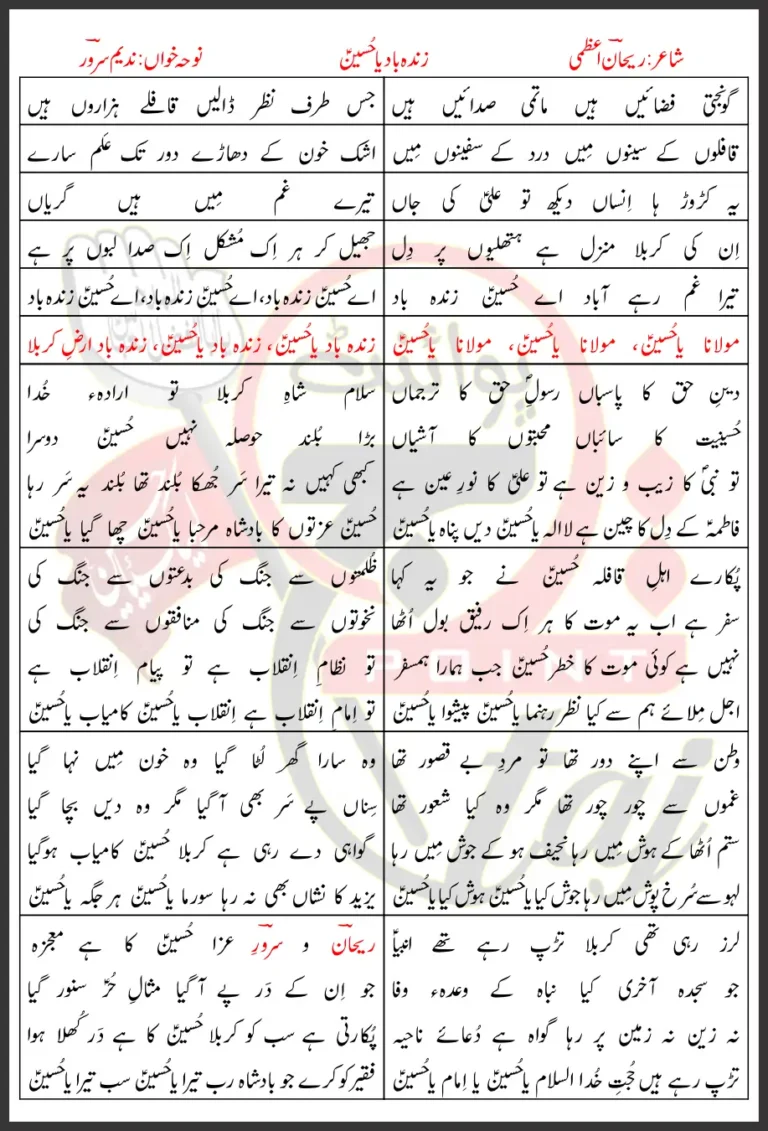 شاعر: ریحان اعظمی زندہ باد یا حُسینؑ نوحہ خواں: ندیم سرور
گونجتی فضائیں ہیں ماتمی صدائیں ہیں جس طرف نظر ڈالیں قافلے ہزاروں ہیں
قافلوں کے سینوں مِیں درد کے سفینوں مِیں اشک خون کے دھاڑے دور تک عَلم سارے
یہ کڑوڑ ہا اِنساں دیکھ تو علیؑ کی جاں تیرے غم مِیں ہیں گریاں
اِن کی کربلا منزل ہے ہتھلیوں پر دِل جھیل کر ہر اِک مُشکل اِک صدا لبوں پر ہے
تیرا غم رہے آباد اے حُسینؑ زندہ باد اے حُسینؑ زندہ باد، اے حُسینؑ زندہ باد، اے حُسینؑ زندہ باد
مولانا یا حُسینؑ، مولانا یا حُسینؑ، مولانا یا حُسینؑ زندہ باد یا حُسینؑ، زندہ باد یا حُسینؑ، زندہ باد ارضِ کربلا
دینِ حق کا پاسباں رسولِؐ حق کا ترجماں سلام شاہِ کربلا تو ارادہء خُدا
حُسینیت کا سائباں محبتوں کا آشیاں بڑا بُلند حوصلہ نہیں حُسینؑ دوسرا
تو نبیؐ کا زیب و زین ہے تو علیؑ کا نورِ عین ہے کبھی کہیں نہ تیرا سَر جُھکا بُلند تھا بُلند یہ سَر رہا
فاطمہؑ کے دِل کا چین ہے لا الہ یا حُسینؑ دیں پناہ یا حُسینؑ حُسینؑ عزتوں کا بادشاہ مرحبا یا حُسینؑ چھا گیا یا حُسینؑ
پُکارے اہلِ قافلہ حُسینؑ نے جو یہ کہا ظُلمتوں سے جنگ کی بدعتوں سے جنگ کی
سفر ہے اب یہ موت کا ہر اِک رفیق بول اُٹھا نخوتوں سے جنگ کی منافقوں سے جنگ کی
نہیں ہے کوئی موت کا خطر حُسینؑ جب ہمارا ہمسفر تو نظامِ اِنقلاب ہے تو پیام اِنقلاب ہے
اجل مِلائے ہم سے کیا نظر رہنما یا حُسینؑ پیشوا یا حُسینؑ تو اِمام اِنقلاب ہے اِنقلاب یا حُسینؑ کامیاب یا حُسینؑ
وطن سے اپنے دور تھا تو مردِ بے قصور تھا وہ سارا گھر لُٹا گیا وہ خون مِیں نہا گیا
غموں سے چور چور تھا مگر وہ کیا شعور تھا سِناں پے سَر بھی آ گیا مگر وہ دیں بچا گیا
ستم اُٹھا کے ہوش مِیں رہا نحیف ہو کے جوش مِیں رہا گواہی دے رہی ہے کربلا حُسینؑ کامیاب ہوگیا
لہو سے سُرخ پوش مِیں رہا جوش کیا یا حُسینؑ ہوش کیا یا حُسینؑ یزید کا نشاں بھی نہ رہا سورما یا حُسینؑ ہر جگہ یا حُسینؑ
لرز رہی تھی کربلا تڑپ رہے تھے انبیاؑ ریحان و سرور عزا حُسینؑ کا ہے معجزہ
جو سجدہ آخری کیا نباہ کے وعدہء وفا جو اِن کے دَر پے آ گیا مثالِ حُرؑ سنور گیا
نہ زین نہ زمین پر رہا گواہ ہے دُعائے ناحیہ پُکارتی ہے سب کو کربلا حُسینؑ کا ہے دَر کُھلا ہوا
تڑپ رہے ہیں حُجتِ خُدا السلام یا حُسینؑ یا اِمام یا حُسینؑ فقیر کو کرے جو بادشاہ رب تیرا یا حُسینؑ سب تیرا یا حُسینؑ
پوائنٹ
POINT
taj